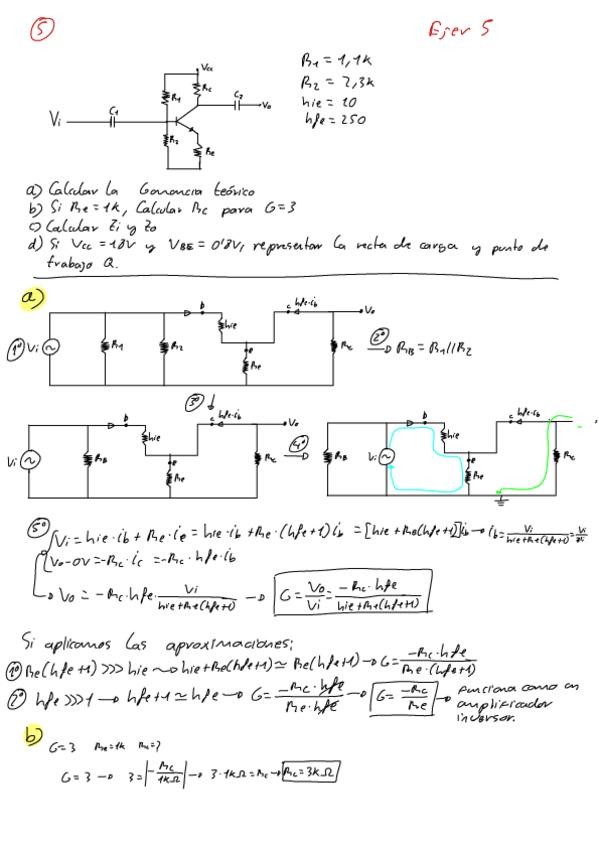 5
Ejer 5
R1 = 1,1k
R2 = 2,3k
hie = 10
hfe = 250
Vcc
R1
Rc
C2
Vo
Vi
C1
R2
Re
a) Calcular la Ganancia teórico
b) Si Re = 1k, Calcular Rc para G=3
c) Calcular Zi y Zo
d) Si Vcc = 18V y VBE = 0'8V, representar la recta de carga y punto de
trabajo Q.
a)
1º Vi R1 R2 b hie e Re c hfe·ib Rc Vo
2º → RB = R1//R2
3º ↓
Vi RB b hie e Re c hfe·ib Rc Vo
4º →
RB Vi b hie e Re c hfe·ib Rc
5º Vi = hie·ib + Re·ie = hie·ib + Re·(hfe+1)ib = [hie+Re(hfe+1)]ib → ib = Vi/(hie+Re(hfe+1)) = Vi/
Vo-0V = -Rc·ic = -Rc·hfe·ib
→ Vo = -Rc·hfe· Vi/(hie+Re(hfe+1)) → G = Vo/Vi = -Rc·hfe/(hie+Re(hfe+1))
Si aplicamos las aproximaciones:
1º Re(hfe+1) >>> hie → hie+Re(hfe+1) ≃ Re(hfe+1) → G = -Rc·hfe/(Re·(hfe+1))
2º hfe >>> 1 → hfe+1 ≃ hfe → G = -Rc·hfe/(Re·hfe) → G = -Rc/Re → Funciona como un
amplificador
inversor.
b)
G=3 Re=1k Rc=?
G=3 → 3 = |-Rc/1kΩ| → 3·1kΩ = Rc → Rc = 3kΩ